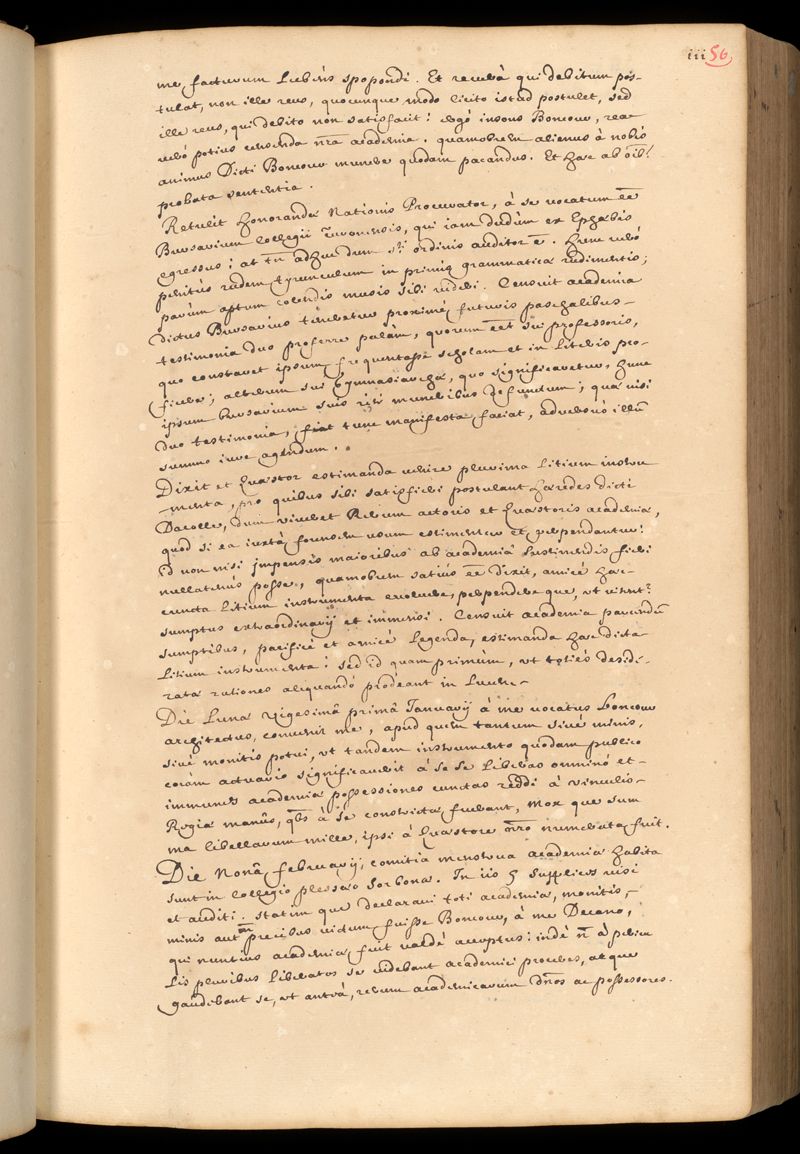 iii 56
me facturum Lubens spopondi. Et revera qui debitum pos-
tulat, non ille reus, quocunque modo licito istud postulet, sed
ille reus, qui debito non satisfacit: ergo insons Boncour, rea
vero potius censenda nra academia. quamobrem alienus à nobis
animus Dicti Boncour munere quodam pacandus. Et haec ab oib'
probata sententia.
Retulit honorandae Nationis Procurator, à se vocatum ee
Bursarium Collegii Turonensis, qui iam dudum ex Ephebis
egressus; at tn adhuc dum 5ti ordinis auditor e. hunc vero
penitus rudem tyrunculum in primis grammaticae rudimentis;
parum aptum colendis musis sibi videri. Censuit academia
dictus Bursarius teneatur proximè futuris paschalibus
testimonia duo proferre palàm, quorum eet sui professoris,
quo constaret ipsum frequentasse scholam et in Literis pro-
ficere; alterum sui Gymnasiarchae, quo significaretur, hunc
ipsum Bursarium suis rite muneribus defunctum; quae nisi
duo testimonia, tunc manifesta faciat, adversus illū
summo iure agendum.
Dixit et Quaestor estimanda venire plurima Litium instru
-menta, pro quibus sibi satisfieri postulant haeredes dicti
Dacolle, dum viveret Rerum actoris et Quaestoris academiae,
quod si ea iuxta forensem usum estimentur et perpendantur:
id non nisi jmpensis maioribus ab academiâ sustinendis fieri
nullatenus posse, quamobrem satius ee dixit, amicè haec
cuncta Litium instrumenta evolvere, perpendereque, ut vitent'
sumptus extraordinarij et immensi. Censuit academia parcendū
sumptibus, pacificè et amicè Legenda, estimanda haec dicta
Litium instrumenta: sed id quam primùm, ut toties deside-
rata rationes aliquandò prodeant in Lucem
Die Lunae vigesimâ primâ Januarij à me vocatus Boncour
architectus, convenit me, apud quem tantum sivè minis,
sivè monitis potui, ut tandem instrumento quodam publico
coràm actuario significaverit à se se Liberas omninò et
immunes academiae possessiones cunctas reddi à vinculis
Regiae manûs, qbs à se constrictae fuerant, Mox que sum
ma libellarum mille, ipsi à Quaestore nrō numerata fuit.
Die Nonâ februarij, comitia menstrua academiae habita
sunt in Collegio plessaeo Sorbonae. In iis 5 supplices visi
et auditi. statim que declaravi toti academiae, monitis,
minis aut precibus victum fuisse Boncour, à me Decano,
qui nuntius academiae fuit valdè acceptus: indè n à pericu
lis pluribus Liberatos se videbant academici proceres, atque
gaudebant se, ut anteà, rerum academicarum dnos ac possessores.